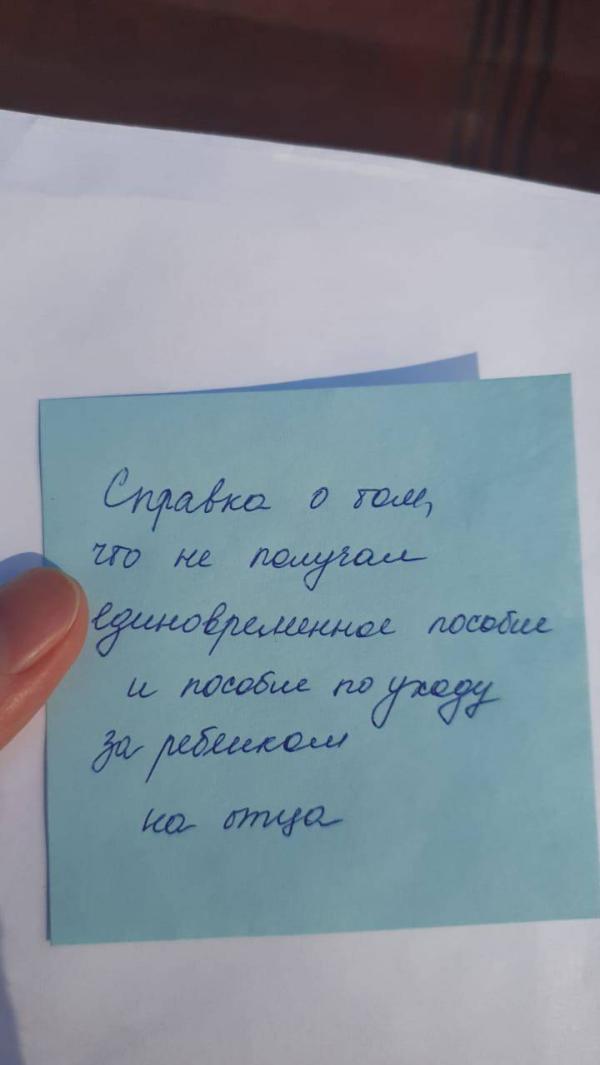 Справка о том,
что не получал
единовременное пособие
и пособие по уходу
за ребенком
на отца